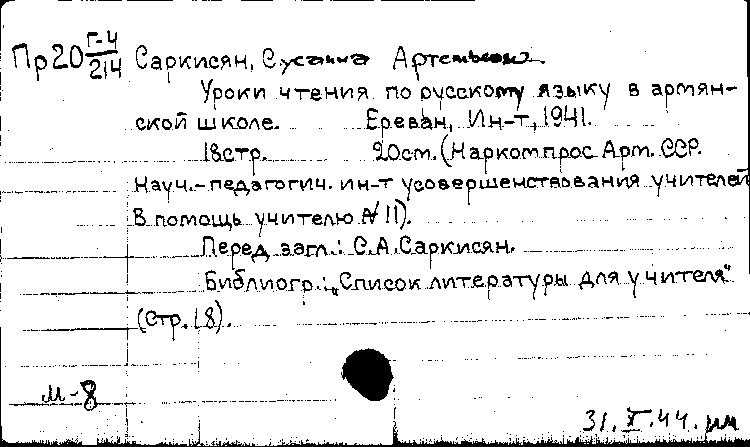 Пр20 Г-4/214 Саркисян, Сусанна Артемьевна
Уроки чтения по русскому языку в армян-
ской школе. Ереван, Ин-т, 1941.
18стр. 20см. (Наркомпрос Арм. ССР.
Науч.-педагогич. ин-т усовершенствования учителей
В помощь учителю № 11).
Перед загл.: С.А.Саркисян.
Библиогр.: „Список литературы для учителя"
(стр. 18).
М-8
31.X.44.